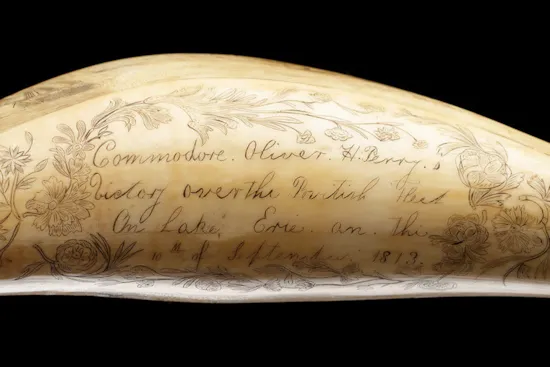 Commodore. Oliver. H. Perry,s
Victory over the British Fleet
On. Lake, Erie. an. the
10th of September. 1813.